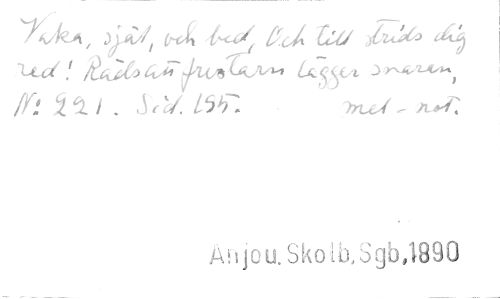 Vaka, själ, och bed, Och till strids dig
red! Rädsan frestarn lägger snaran,
No 221. Sid. 155. mel-not.
Anjou, Skolb, Sgb, 1890